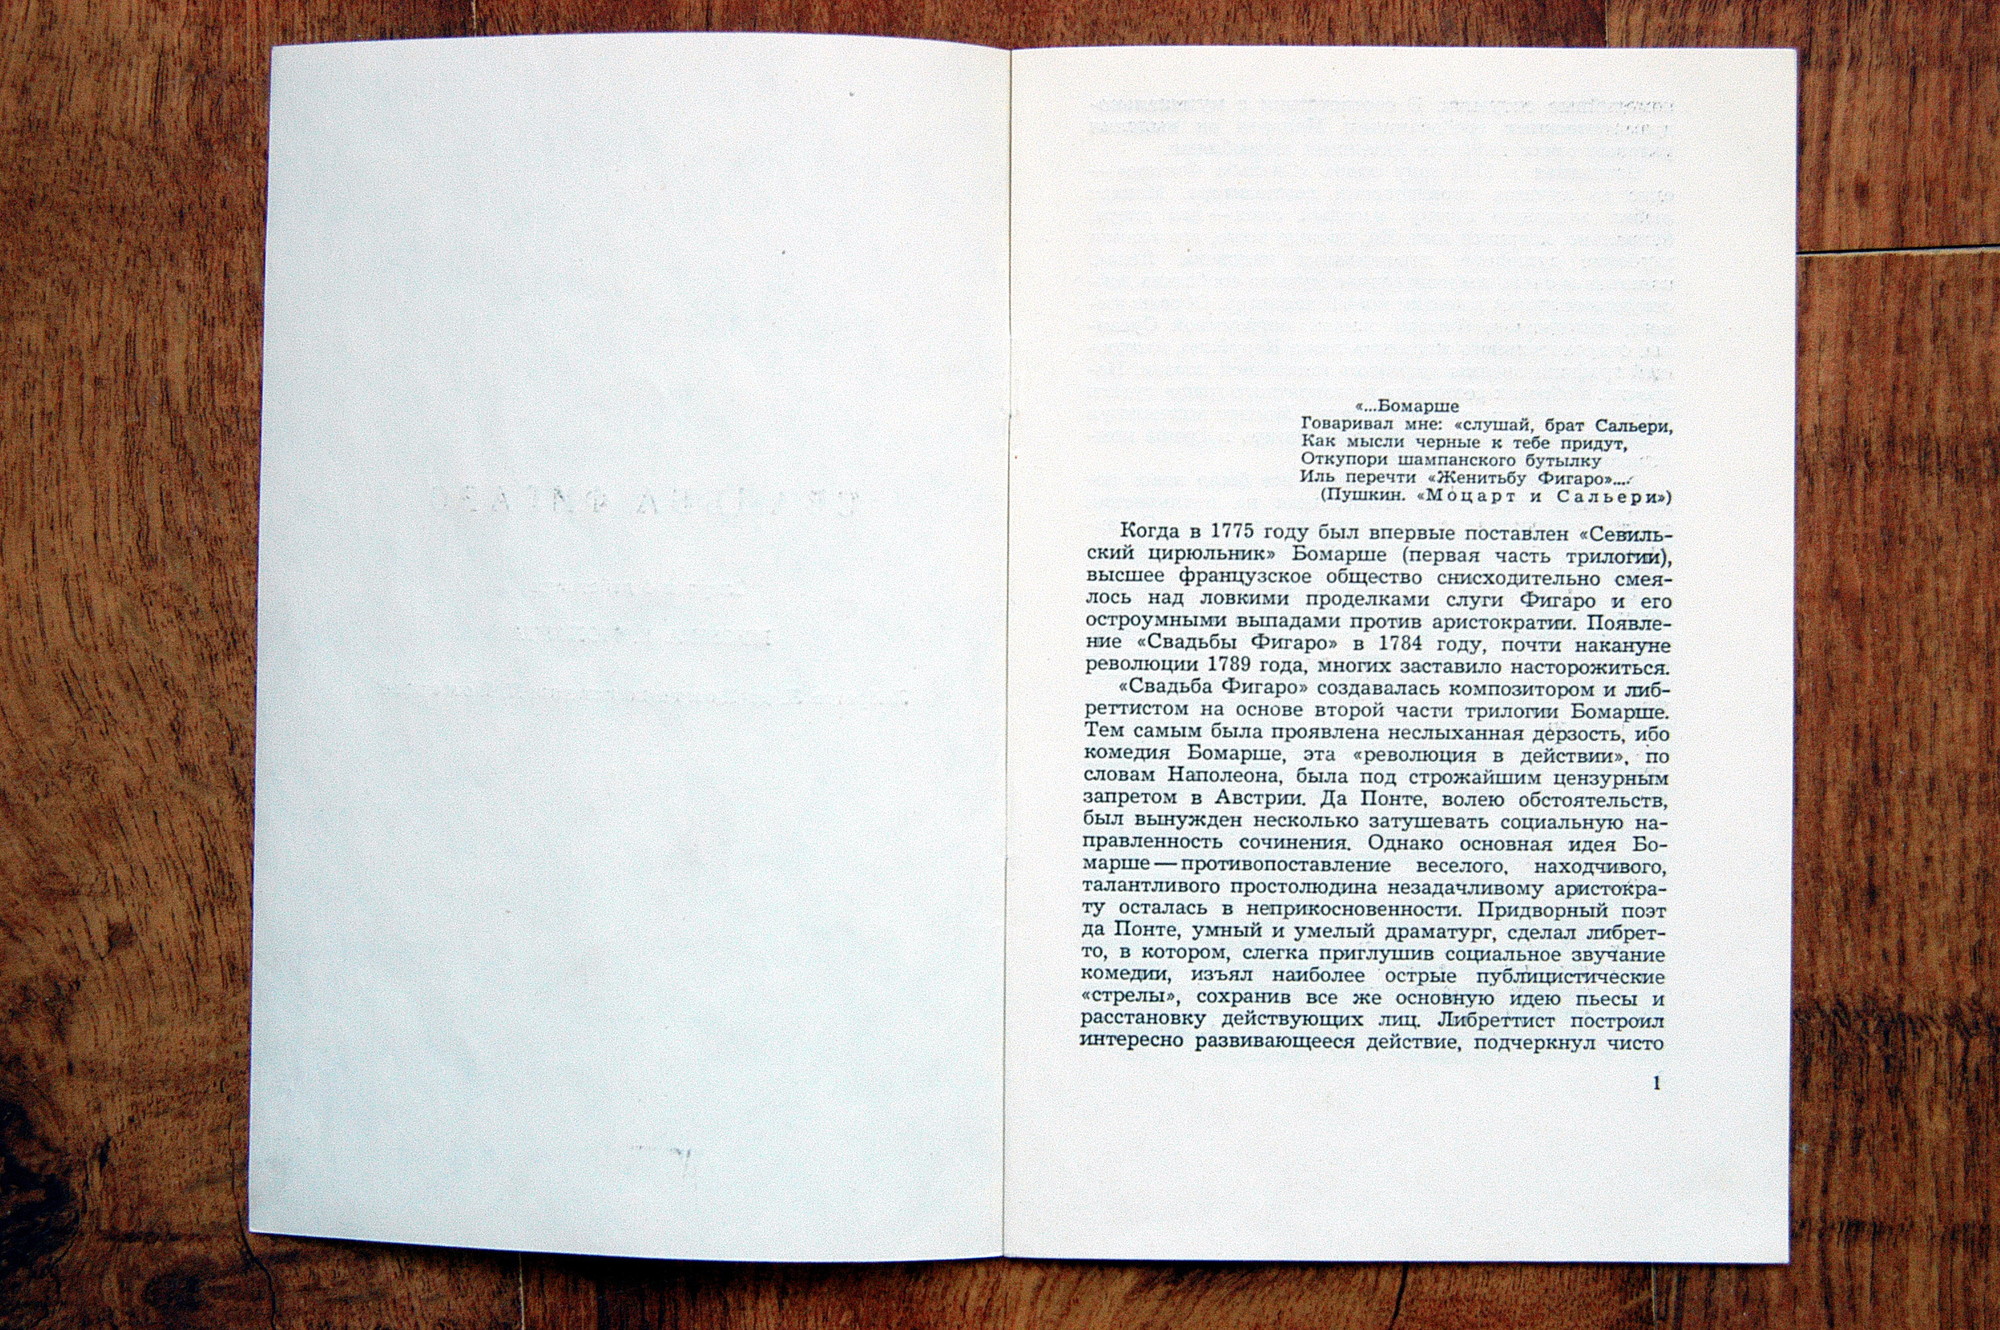 «...Бомарше
Говаривал мне: «слушай, брат Сальери,
Как мысли черные к тебе придут,
Откупори шампанского бутылку
Иль перечти «Женитьбу Фигаро»....
(Пушкин. «Моцарт и Сальери»)
Когда в 1775 году был впервые поставлен «Севиль-
ский цирюльник» Бомарше (первая часть трилогии),
высшее французское общество снисходительно смея-
лось над ловкими проделками слуги Фигаро и его
остроумными выпадами против аристократии. Появле-
ние «Свадьбы Фигаро» в 1784 году, почти накануне
революции 1789 года, многих заставило насторожиться.
«Свадьба Фигаро» создавалась композитором и либ-
реттистом на основе второй части трилогии Бомарше.
Тем самым была проявлена неслыханная дерзость, ибо
комедия Бомарше, эта «революция в действии», по
словам Наполеона, была под строжайшим цензурным
запретом в Австрии. Да Понте, волею обстоятельств,
был вынужден несколько затушевать социальную на-
правленность сочинения. Однако основная идея Бо-
марше — противопоставление веселого, находчивого,
талантливого простолюдина незадачливому аристокра-
ту осталась в неприкосновенности. Придворный поэт
да Понте, умный и умелый драматург, сделал либрет-
то, в котором, слегка приглушив социальное звучание
комедии, изъял наиболее острые публицистические
«стрелы», сохранив все же основную идею пьесы и
расстановку действующих лиц. Либреттист построил
интересно развивающееся действие, подчеркнул чисто
1